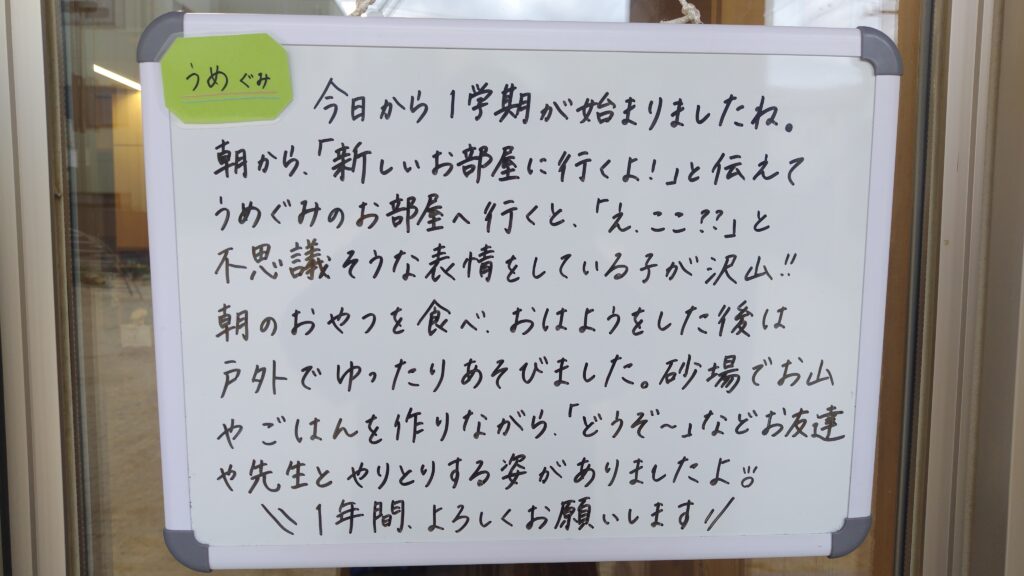 うめぐみ
今日から1学期が始まりましたね。
朝から、「新しいお部屋に行くよ!」と伝えて
うめぐみのお部屋へ行くと、「え、ここ??」と
不思議そうな表情をしている子が沢山!!
朝のおやつを食べ、おはようをした後は
戸外でゆったりあそびました。砂場でお山
やごはんを作りながら、「どうぞ〜」などお友達
や先生とやりとりする姿がありましたよ!!
\\1年間、よろしくお願いします//